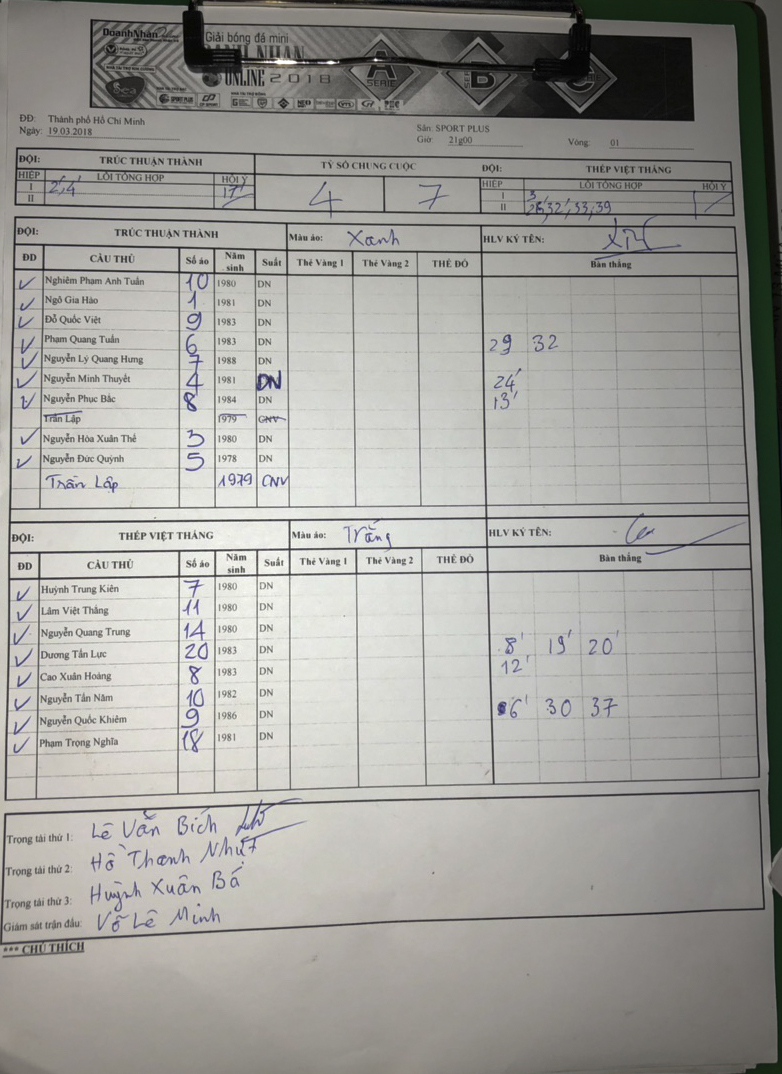 DoanhNhan
Giải bóng đá mini
DOANH NHAN
ONLINE 2018
A SERIE
B
Sea
SPORT PLUS
ĐĐ: Thành phố Hồ Chí Minh
Ngày: 19.03.2018
Sân: SPORT PLUS
Giờ: 21g00 Vòng: 01
ĐỘI: TRÚC THUẬN THÀNH TỶ SỐ CHUNG CUỘC ĐỘI: THÉP VIỆT THẮNG
HIỆP LỖI TỔNG HỢP HỘI Ý 4 7 HIỆP LỖI TỔNG HỢP HỘI Ý
I 2', 4' 17' I 3'
II II 32', 33, 39
ĐỘI: TRÚC THUẬN THÀNH Màu áo: Xanh HLV KÝ TÊN:
ĐD CẦU THỦ Số áo Năm sinh Suất Thẻ Vàng 1 Thẻ Vàng 2 THẺ ĐỎ Bàn thắng
Nghiêm Phạm Anh Tuấn 10 1980 DN
Ngô Gia Hào 1 1981 DN
Đỗ Quốc Việt 9 1983 DN
Phạm Quang Tuấn 6 1983 DN 29 32
Nguyễn Lý Quang Hưng 7 1988 DN
Nguyễn Minh Thuyết 4 1981 DN 24'
Nguyễn Phục Bắc 8 1984 DN 13'
Trần Lập 1979 CNV
Nguyễn Hòa Xuân Thế 3 1980 DN
Nguyễn Đức Quỳnh 5 1978 DN
Trần Lập 1979 CNV
ĐỘI: THÉP VIỆT THẮNG Màu áo: Trắng HLV KÝ TÊN:
ĐD CẦU THỦ Số áo Năm sinh Suất Thẻ Vàng 1 Thẻ Vàng 2 THẺ ĐỎ Bàn thắng
Huỳnh Trung Kiên 7 1980 DN
Lâm Việt Thắng 11 1980 DN
Nguyễn Quang Trung 14 1980 DN
Dương Tấn Lực 20 1983 DN 8' 19' 20'
Cao Xuân Hoàng 8 1983 DN 12'
Nguyễn Tấn Năm 10 1982 DN
Nguyễn Quốc Khiêm 9 1986 DN 6' 30 37
Phạm Trọng Nghĩa 18 1981 DN
Trọng tài thứ 1: Lê Văn Bích
Trọng tài thứ 2: Hồ Thanh Nhựt
Trọng tài thứ 3: Huỳnh Xuân Bá
Giám sát trận đấu: Võ Lê Minh
*** CHÚ THÍCH